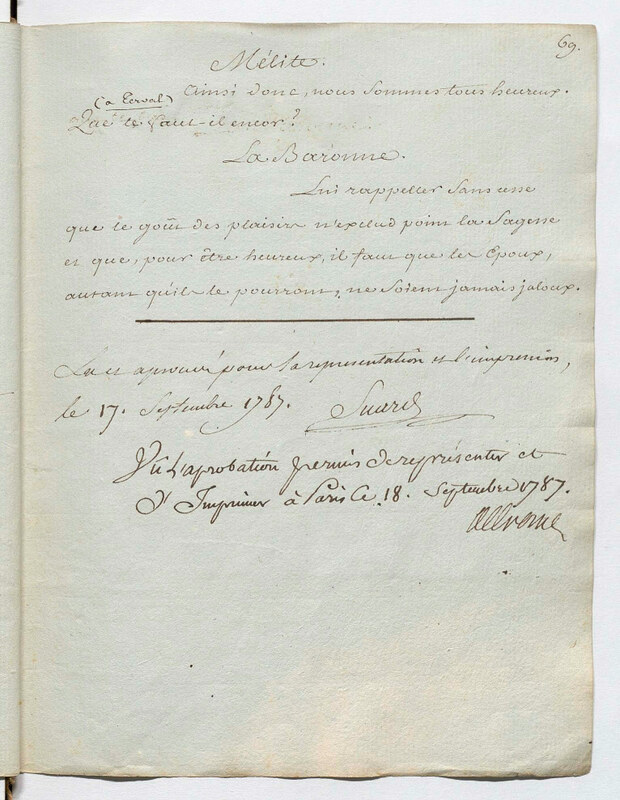 69.
Mélite.
Ainsi donc, nous sommes tous heureux.
(à Terval)
Que le faut-il encor?
La Baronne.
Lui rappeller sans cesse
que le goût des plaisirs n'exclud point la sagesse
et que, pour être heureux, il faut que les Epoux,
autant qu'ils le pourront, ne soient jamais jaloux.
Lu et aprouvé pour la représentation et l'impression,
le 17. Septembre 1787. Suard
Vu l'aprobation permis de représenter et
d'Imprimer à Paris Ce 18. Septembre 1787.